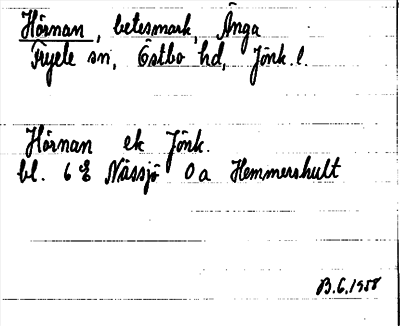 Hörnan, betesmark, Änga
Fryele sn, Östbo hd, Jönk. l.
Hörnan ek Jönk.
bl. 6 E Nässjö 0 a Hemmershult
B.G. 1958